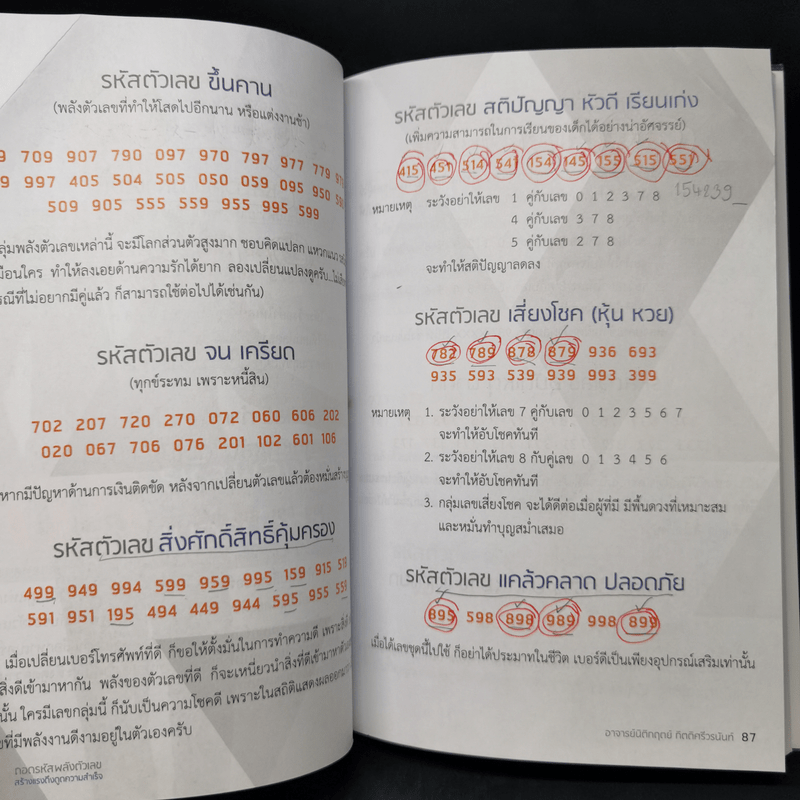 รหัสตัวเลข ขึ้นคาน
(พลังตัวเลขที่ทำให้โสดไปอีกนาน หรือแต่งงานช้า)
709 907 790 097 970 797 977 779
997 405 504 505 050 059 095 950
509 905 555 559 955 995 599
กลุ่มพลังตัวเลขเหล่านี้ จะมีโลกส่วนตัวสูงมาก ชอบคิดแปลก
ทำให้ลงเอยด้วยความรักได้ยาก ลองเปลี่ยนแปลงดูครับ
ที่ไม่อยากมีคู่แล้ว ก็สามารถใช้ต่อไปได้เช่นกัน)
รหัสตัวเลข จน เครียด
(ทุกข์ระทม เพราะหนี้สิน)
702 207 720 270 072 060 606 202
020 067 706 076 201 102 601 106
หากมีปัญหาด้านการเงินติดขัด หลังจากเปลี่ยนตัวเลขแล้วต้องหมั่น
รหัสตัวเลข สิ่งศักดิ์สิทธิ์คุ้มครอง
499 949 994 599 959 995 159 915
591 951 195 494 449 944 595 955
เมื่อเปลี่ยนเบอร์โทรศัพท์ที่ดี ก็ขอให้ตั้งมั่นในการทำความดี เพราะ
สิ่งดีเข้ามาหากัน พลังของตัวเลขที่ดี ก็จะเหนี่ยวนำสิ่งที่ดีเข้ามาหา
นั้น ใครมีเลขกลุ่มนี้ ก็นับเป็นความโชคดี เพราะในสถิติแสดงผล
ที่มีพลังงานดีงามอยู่ในตัวเองครับ
ถอดรหัสพลังตัวเลข
สร้างแรงดึงดูดความสำเร็จ
รหัสตัวเลข สติปัญญา หัวดี เรียนเก่ง
(เพิ่มความสามารถในการเรียนของเด็กได้อย่างน่าอัศจรรย์)
415 451 514 541 154 145 155 515 551
154239
หมายเหตุ ระวังอย่าให้เลข 1 คู่กับเลข 0 1 2 3 7 8
4 คู่กับเลข 3 7 8
5 คู่กับเลข 2 7 8
จะทำให้สติปัญญาลดลง
รหัสตัวเลข เสี่ยงโชค (หุ้น หวย)
782 789 878 879 936 693
935 593 539 939 993 399
หมายเหตุ 1. ระวังอย่าให้เลข 7 คู่กับเลข 0 1 2 3 5 6 7
จะทำให้อับโชคทันที
2. ระวังอย่าให้เลข 8 กับคู่เลข 0 1 3 4 5 6
จะทำให้อับโชคทันที
3. กลุ่มเลขเสี่ยงโชค จะได้ดีต่อเมื่อผู้ที่มี มีพื้นดวงที่เหมาะสม
และหมั่นทำบุญสม่ำเสมอ
รหัสตัวเลข แคล้วคลาด ปลอดภัย
895 598 898 989 998 899
เมื่อได้เลขชุดนี้ไปใช้ ก็อย่าได้ประมาทในชีวิต เบอร์ดีเป็นเพียงอุปกรณ์เสริมเท่านั้น
อาจารย์นิติกฤตย์ กิตติศรีวรนันท์ 87